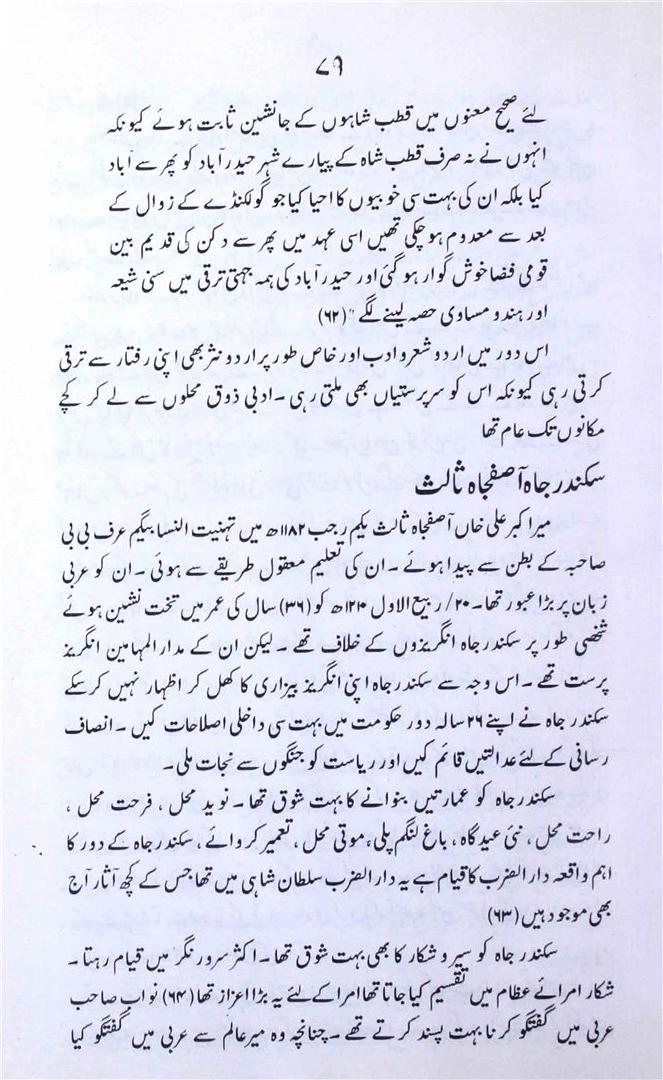 ۷۹
لئے صحیح معنوں میں قطب شاہوں کے جانشین ثابت ہوئے کیونکہ
انہوں نے نہ صرف قطب شاہ کے پیارے شہر حیدرآباد کو پھر سے آباد
کیا بلکہ ان کی بہت سی خوبیوں کا احیا کیا جو گولکنڈے کے زوال کے
بعد سے معدوم ہو چکی تھیں اسی عہد میں پھر سے دکن کی قدیم بین
قومی فضا خوش گوار ہو گئی اور حیدرآباد کی ہمہ جہتی ترقی میں سنی شیعہ
اور ہندو مساوی حصہ لینے لگے" (۶۲)
اس دور میں اردو شعر و ادب اور خاص طور پر اردو نثر بھی اپنی رفتار سے ترقی
کرتی رہی کیونکہ اس کو سرپرستیاں بھی ملتی رہی ۔ ادبی ذوق محلوں سے لے کر کچے
مکانوں تک عام تھا
سکندر جاہ آصفجاہ ثالث
میر اکبر علی خاں آصفجاہ ثالث یکم رجب ۱۱۸۲ھ میں تہنیت النسا بیگم عرف بی بی
صاحبہ کے بطن سے پیدا ہوئے ۔ ان کی تعلیم معقول طریقے سے ہوئی ۔ ان کو عربی
زبان پر بڑا عبور تھا ۔ ۲۰/ ربیع الاول ۱۲۱۰ھ کو (۳۶) سال کی عمر میں تخت نشین ہوئے
شخصی طور پر سکندر جاہ انگریزوں کے خلاف تھے ۔ لیکن ان کے مدارالمہامین انگریز
پرست تھے ۔ اس وجہ سے سکندر جاہ اپنی انگریز بیزاری کا کھل کر اظہار نہیں کر سکے
سکندر جاہ نے اپنے ۲۶ سالہ دور حکومت میں بہت سی داخلی اصلاحات کیں ۔ انصاف
رسانی کے لئے عدالتیں قائم کیں اور ریاست کو جنگوں سے نجات ملی ۔
سکندر جاہ کو عمارتیں بنوانے کا بہت شوق تھا ۔ نوید محل ، فرحت محل ،
راحت محل ، نئی عیدگاہ ، باغ لنگم پلی ، موتی محل ، تعمیر کروائے ، سکندر جاہ کے دور کا
اہم واقعہ دار الضرب کا قیام ہے یہ دار الضرب سلطان شاہی میں تھا جس کے کچھ آثار آج
بھی موجود ہیں (۶۳)
سکندر جاہ کو سیر و شکار کا بھی بہت شوق تھا ۔ اکثر سرور نگر میں قیام رہتا ۔
شکار امرائے عظام میں تقسیم کیا جاتا تھا امرا کے لئے یہ بڑا اعزاز تھا (۶۴) نواب صاحب
عربی میں گفتگو کرنا بہت پسند کرتے تھے ۔ چنانچہ وہ میر عالم سے عربی میں گفتگو کیا